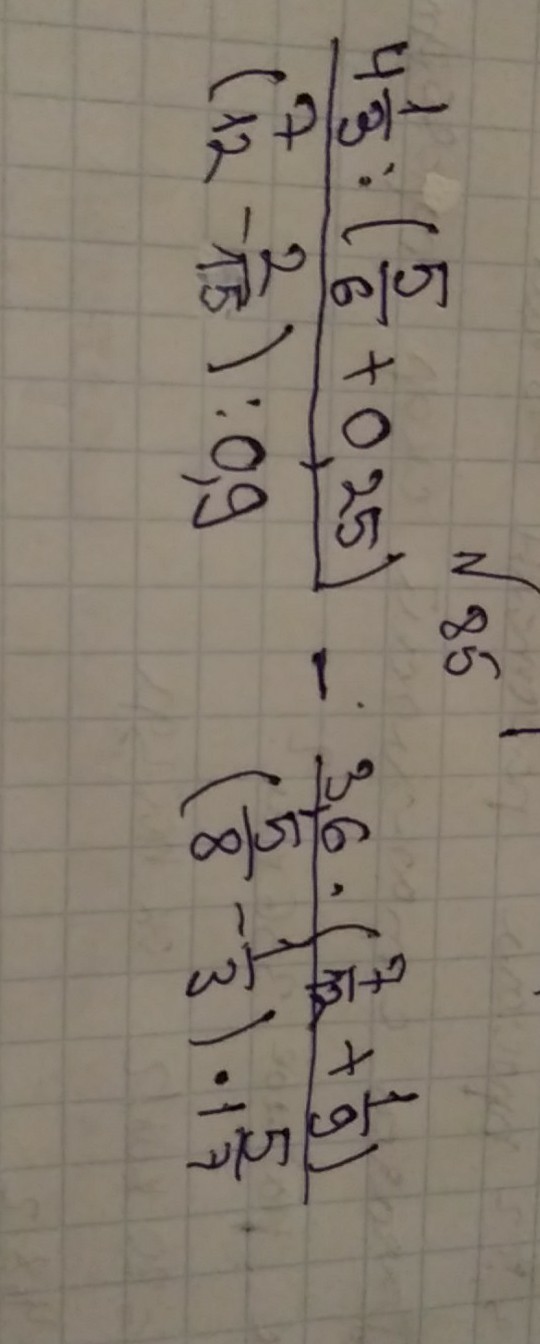 N 85
4 1/3 : (5/6 + 0,25) / (7/12 - 2/15) : 0,9 - 3,6 · (7/12 + 1/9) / (5/8 - 1/3) · 1 5/7